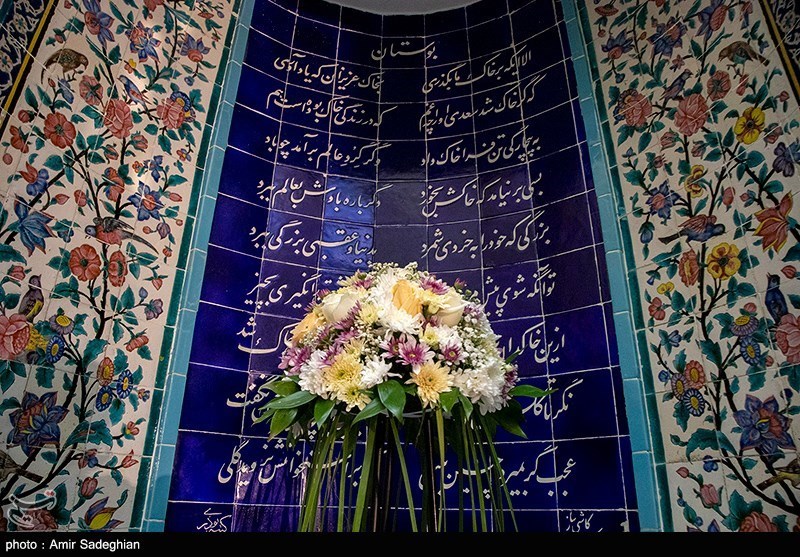 بوستان
الا ایکه بر خاک ما بگذری بخاک عزیزان که یاد آوری
که گر خاک شد سعدی او را چه غم که در زندگی خاک بودست هم
به بیچارگی تن فرا خاک داد دگر گرد عالم برآمد چو باد
بسی برنیامد که خاکش بخورد دگر باره بادش بعالم ببرد
بزرگی که خود را به خردی شمرد بدنیا و عقبی بزرگی ببرد
تو آنگه شوی پیش نگیری بچیز
ازین خاکدان خاک شد
نگر تا نگفت
عجب گر بمیرد چنین نروید گلی
photo : Amir Sadeghian